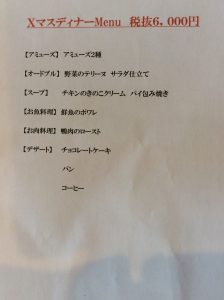 XマスディナーMenu 税抜6,000円
【アミューズ】 アミューズ2種
【オードブル】 野菜のテリーヌ サラダ仕立て
【スープ】 チキンのきのこクリーム パイ包み焼き
【お魚料理】 鮮魚のポワレ
【お肉料理】 鴨肉のロースト
【デザート】 チョコレートケーキ
パン
コーヒー